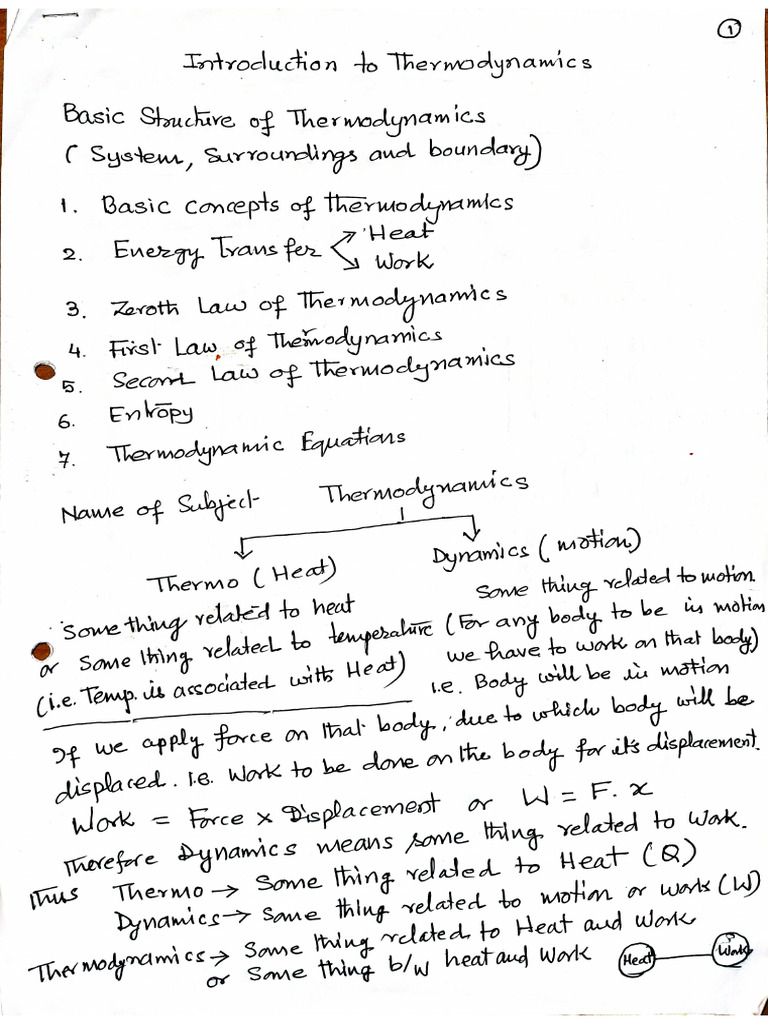 1
Introduction to Thermodynamics
Basic Structure of Thermodynamics
(System, Surroundings and boundary)
1. Basic concepts of thermodynamics
2. Energy Transfer Heat
Work
3. Zeroth Law of Thermodynamics
4. First Law of Thermodynamics
5. Second Law of Thermodynamics
6. Entropy
7. Thermodynamic Equations
Name of Subject- Thermodynamics
Thermo (Heat) Dynamics (motion)
Something related to heat
or Some thing related to temperature
(i.e. Temp. is associated with Heat)
Some thing related to motion
(For any body to be in motion
we have to work on that body)
i.e. Body will be in motion
If we apply force on that body, due to which body will be
displaced. i.e. Work to be done on the body for its displacement.
Work = Force × Displacement or W = F. x
Therefore Dynamics means some thing related to Work.
Thus Thermo → Some thing related to Heat (Q)
Dynamics → Some thing related to motion or work (W)
Thermodynamics → Some thing related to Heat and Work
or Some thing b/w heat and Work Heat Work